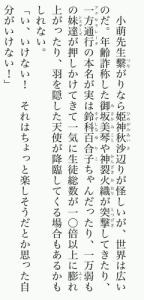 小萌先生繋がりなら姫神秋沙辺りが怪しいが、世界は広い
のだ。年齢詐称した御坂美琴や神裂火織が突撃してきたり、
一方通行の本名が実は鈴科百合子ちゃんだったり、一万弱も
の妹達が押しかけてきて一気に生徒総数が二〇倍以上に膨れ
上がったり、羽を隠した天使が降臨してくる場合もあるかも
しれない。
「い、いけない！　それはちょっと楽しそうだとか思った自
分がいけない！」